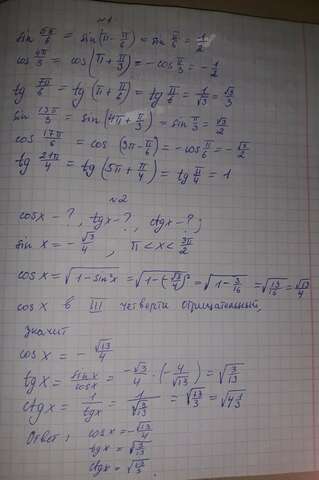 №1
sin 5π/6 = sin(π - π/6) = sin π/6 = 1/2
cos 4π/3 = cos(π + π/3) = -cos π/3 = -1/2
tg 7π/6 = tg(π + π/6) = tg π/6 = 1/√3 = √3/3
sin 13π/3 = sin(4π + π/3) = sin π/3 = √3/2
cos 17π/6 = cos(3π - π/6) = -cos π/6 = -√3/2
tg 21π/4 = tg(5π + π/4) = tg π/4 = 1
№2
cosx - ?, tgx - ?, ctgx - ?;
sin x = -√3/4, π < x < 3π/2
cos x = √(1 - sin²x) = √(1 - (-√3/4)²) = √(1 - 3/16) = √(13/16) = √13/4
cos x в III четверти отрицательный,
значит
cos x = -√13/4
tg x = sin x/cos x = -√3/4 · (-4/√13) = √(3/13)
ctg x = 1/tgx = 1/√(3/13) = √(13/3) = √(4 1/3)
Ответ: cosx = -√13/4
tgx = √(3/13)
ctgx = √(13/3).